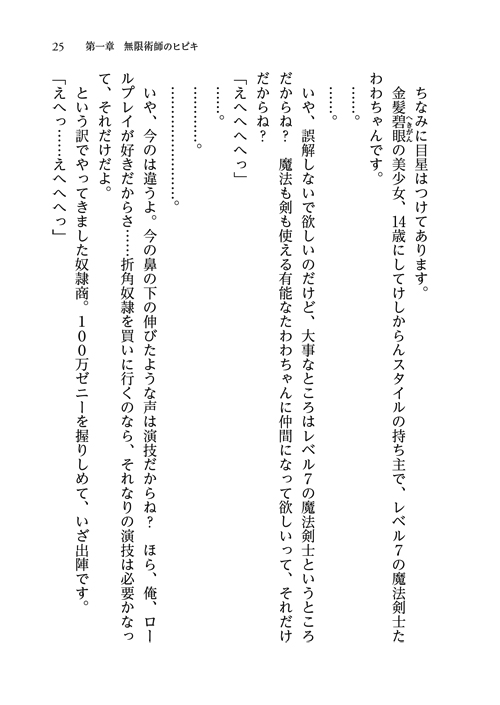 25　第一章　無限術師のヒビキ
ちなみに目星はつけてあります。
金髪碧眼の美少女、14歳にしてけしからんスタイルの持ち主で、レベル７の魔法剣士た
へきがん
わわちゃんです。
……。
……。
いや、誤解しないで欲しいのだけど、大事なところはレベル７の魔法剣士というところ
だからね？　魔法も剣も使える有能なたわわちゃんに仲間になって欲しいって、それだけ
だからね？
「えへへへへっ」
……。
…………。
…………………。
いや、今のは違うよ。今の鼻の下の伸びたような声は演技だからね？　ほら、俺、ロー
ルプレイが好きだからさ……折角奴隷を買いに行くのなら、それなりの演技は必要かなっ
て、それだけだよ。
という訳でやってきました奴隷商。１００万ゼニーを握りしめて、いざ出陣です。
「えへっ……えへへへっ」